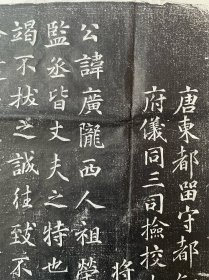 唐東都留守都
府儀同三司撿挍
將
公諱廣隴西人祖榮
監丞皆丈夫之特也
竭不拔之誠往致不